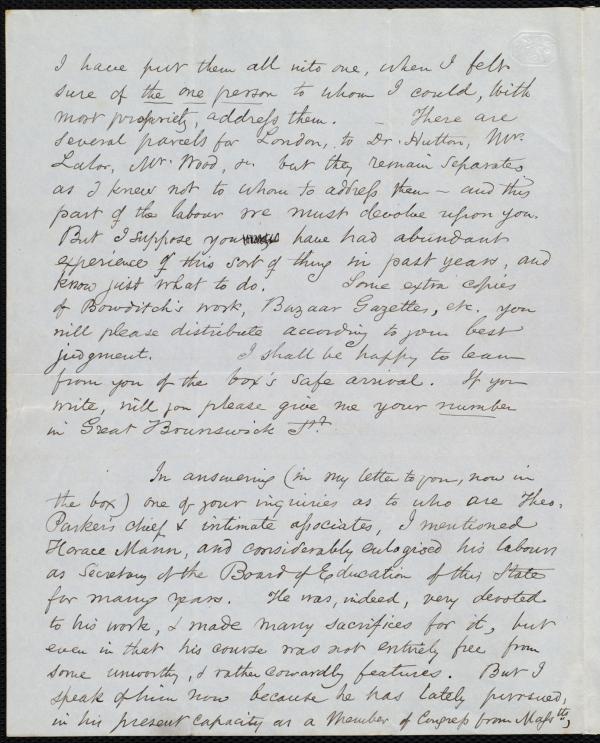 I have put them all into one, when I felt
sure of the one person to whom I could, with
most propriety, address them. — There are
several parcels for London, to Dr. Hutton, Mr.
Lalor, Mr. Wood, &c. but they remain separate,
as I knew not to whom to address them — and this
part of the labour we must devolve upon you.
But I suppose you have had abundant
experience of this sort of thing in past years, and
know just what to do. Some extra copies
of Bowditch's work, Bazaar Gazettes, etc. you
will please distribute according to your best
judgment. I shall be happy to learn
from you of the box's safe arrival. If you
write, will you please give me your number
in Great Brunswick St.
In answering (in my letter to you, now in
the box) one of your inquiries as to who are Theo.
Parker's chief & intimate associates, I mentioned
Horace Mann, and considerably eulogised his labours
as Secretary of the Board of Education of this State
for many years. He was, indeed, very devoted
to his work, & made many sacrifices for it, but
even in that his course was not entirely free from
some unworthy, & rather cowardly features. But I
speak of him now because he has lately pursued,
in his present capacity as a Member of Congress from Masstts,